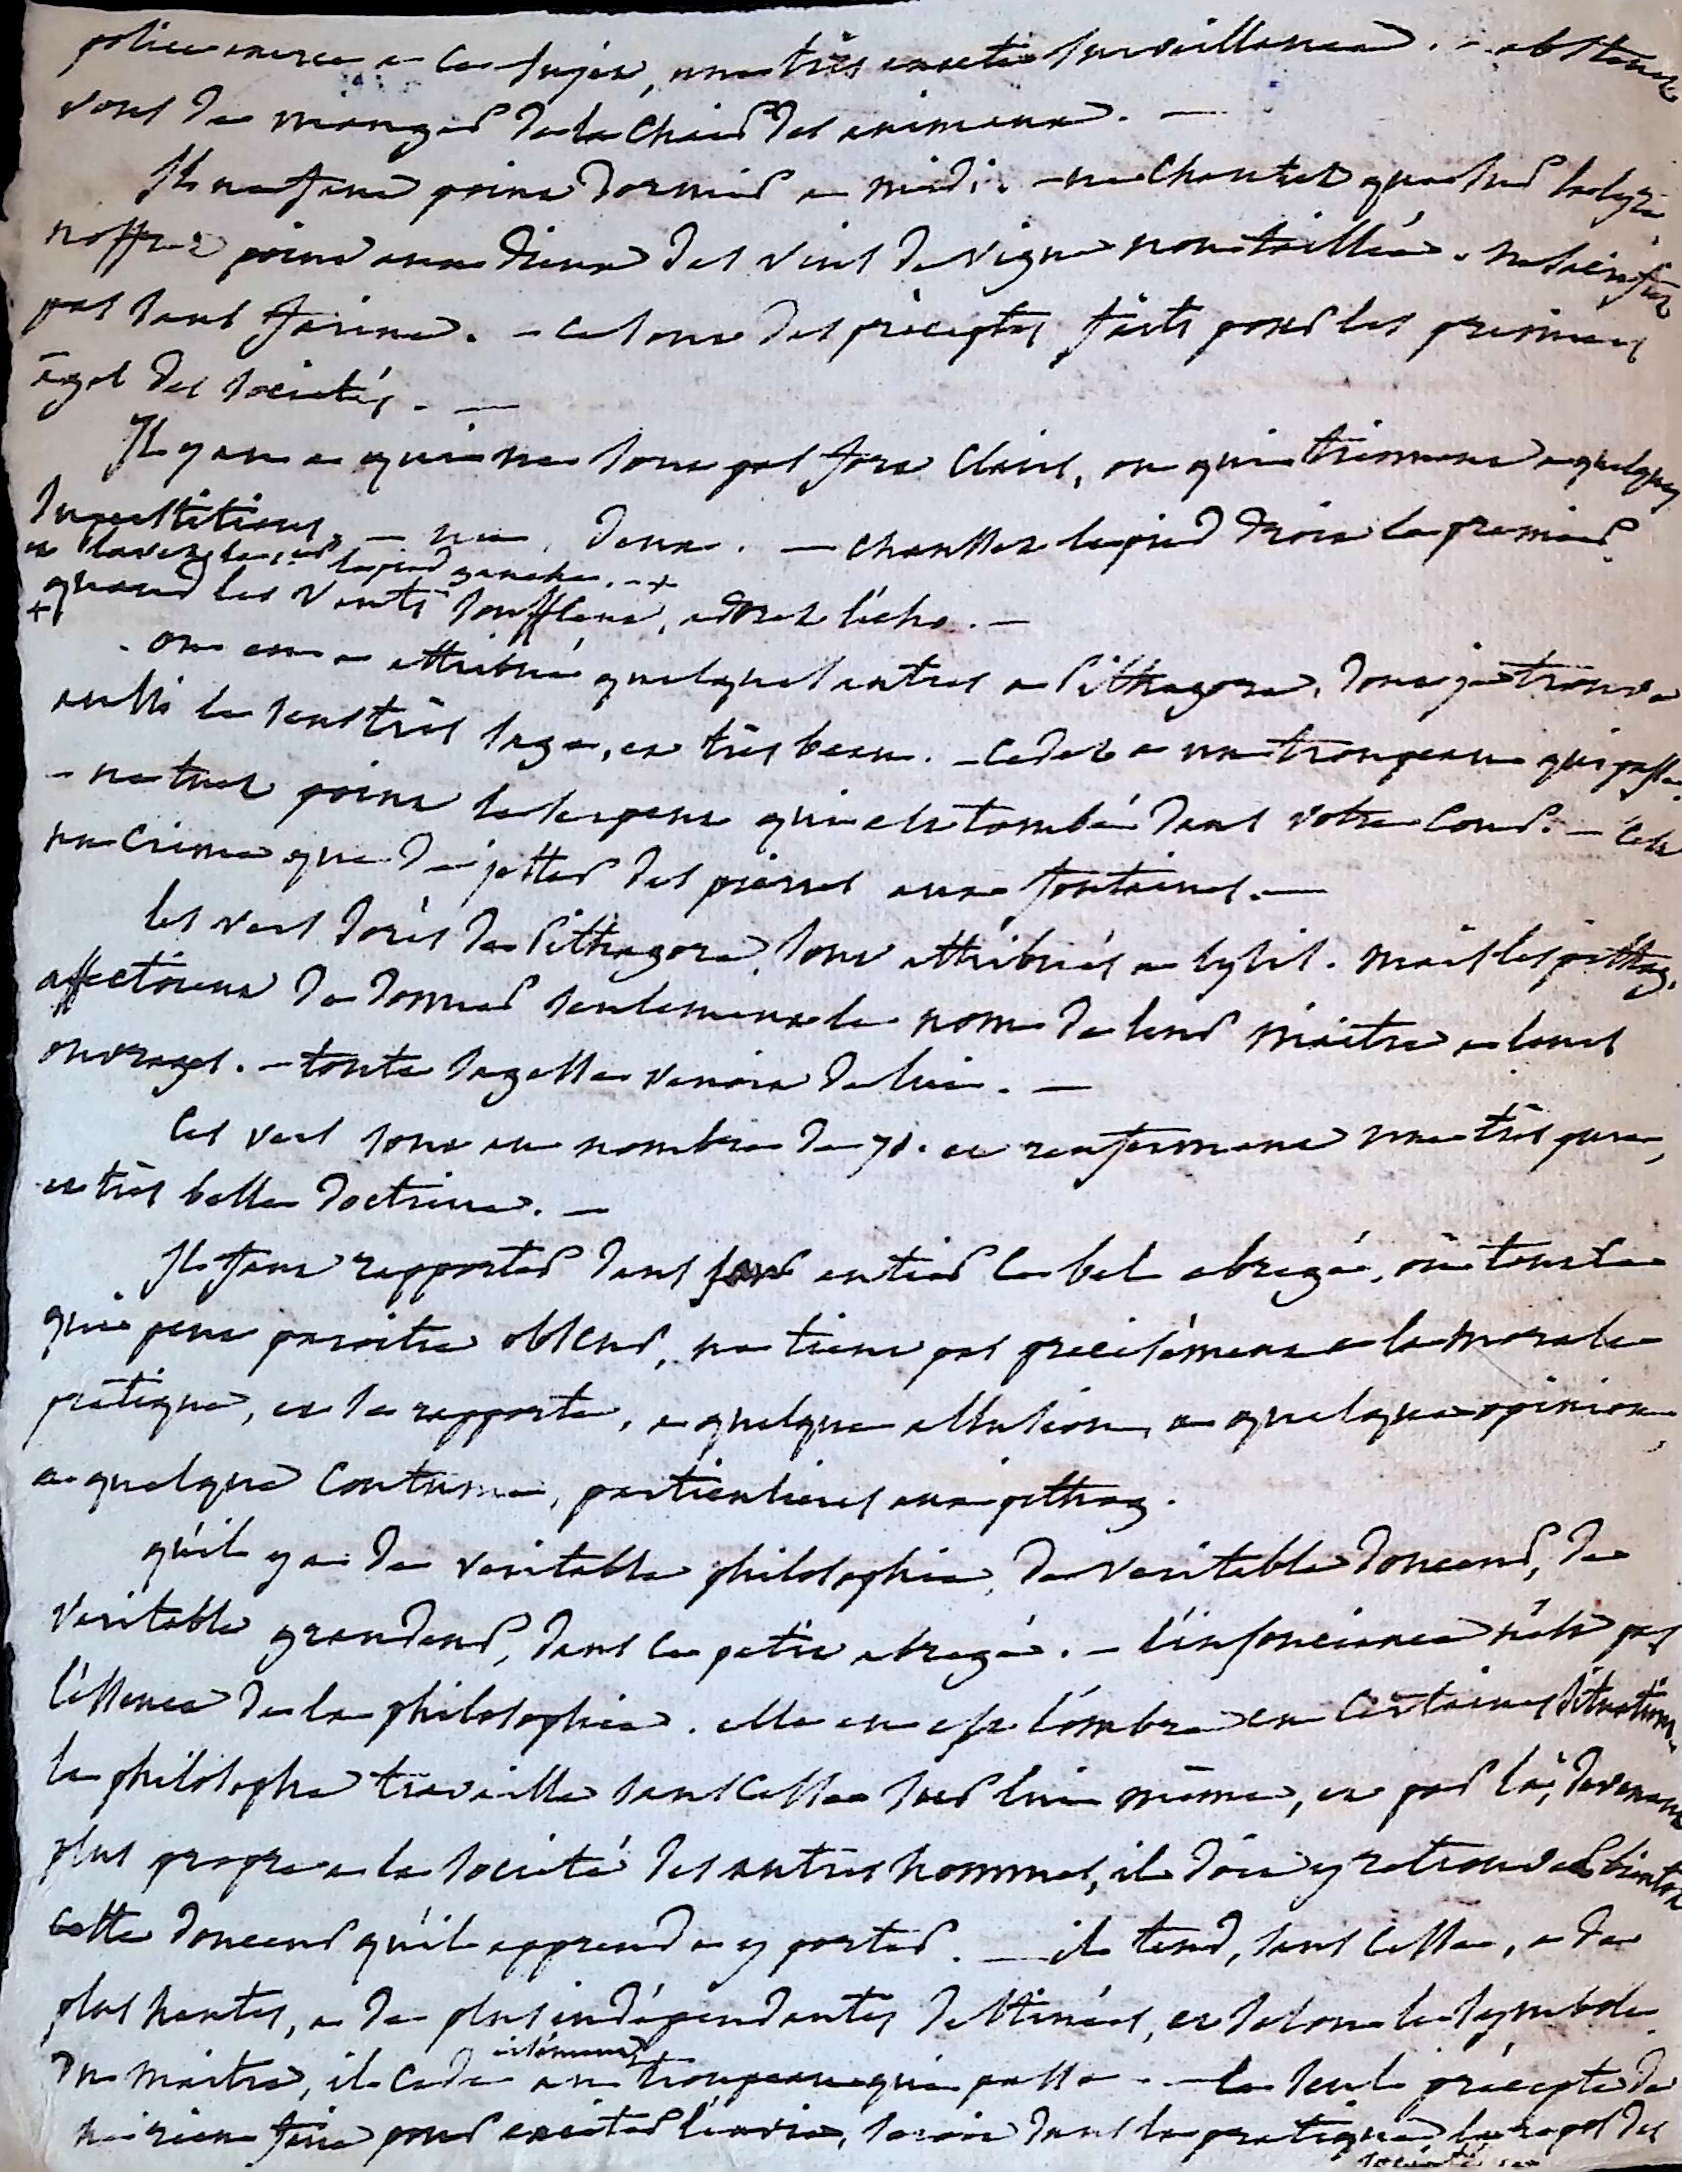 police exerce a ce sujet, une très exacte surveillance. - abstenez
vous de manger de la chair des animaux. —
Il ne faut point dormir a midi. - ne chantez que sur la lyre.
n'offrez point aux dieux des vins de vigne non taillée. ne sacrifiez
pas sans farine. - ce sont des préceptes faits pour les premiers
âges des societés. —
Il y en a qui ne sont pas fort clairs, ou qui tiennent a quelques
superstitions, - un, deux. — chaussez le pied droit le premier.
et lavez le pied gauche. - +
+ quand les vents soufflent, adorez l'écho. —
on en a attribué quelques autres a Pithagore, dont je trouve
aussi le sens très sage, et très beau. - cedez a un troupeau qui passe.
- ne tuez point le serpent qui est tombé dans votre cour. - c'est
un crime que de jetter des pierres aux fontaines. —
les vers dorés de Pithagore, sont attribués a lysis. mais les pithag.
affectoient de donner seulement le nom de leur maitre a leurs
ouvrages. - toute sagesse venoit de lui. —
Ces vers sont au nombre de 71. et renferment une très pure,
et très belle doctrine. —
Il faut rapporter dans son entier ce bel abregé, où tout ce
qui peut paroitre obscur, ne tient pas precisément a la morale
pratique, et se rapporte, a quelque allusion, a quelque opinion,
a quelque coutume, particulieres aux pithag.
qu'il y a de veritable philosophie, de veritable douceur, de
veritable grandeur, dans ce petit abregé. - l'insouciance n'est pas
l'essence de la philosophie. elle en est l'ombre en certaines situations.
le philosophe travaille sans cesse sur lui même, et par là, devenant
plus propre a la societé des autres hommes, il doit y retrouver bientot
cette douceur qu'il apprend a y porter. — il tend, sans cesse, a de
plus hautes, a de plus indépendantes destinées, et selon le symbole
du maitre, il cede aisément au troupeau qui passe. - le seul précepte de
ne rien faire pour exciter l'envie, seroit dans la pratique, le repos des
societés